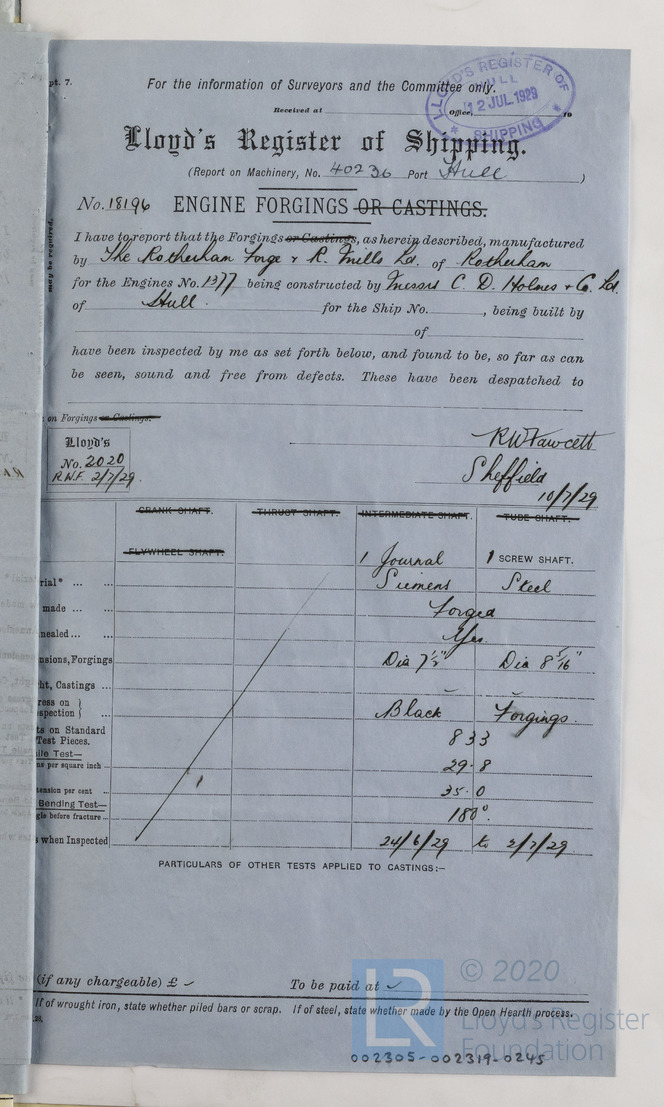 pt. 7.
For the information of Surveyors and the Committee only.
LLOYD'S REGISTER OF SHIPPING
HULL
12 JUL. 1929
Received at Office, 19
Lloyd's Register of Shipping.
(Report on Machinery, No. 40236 Port Hull )
No. 18196 ENGINE FORGINGS OR CASTINGS.
may be required.
I have to report that the Forgings or Castings, as herein described, manufactured
by The Rotherham Forge & R. Mills Ld. of Rotherham
for the Engines No. 1377 being constructed by Messrs C. D. Holmes & Co. Ld.
of Hull for the Ship No. , being built by
of
have been inspected by me as set forth below, and found to be, so far as can
be seen, sound and free from defects. These have been despatched to
on Forgings or Castings.
Lloyd's
No. 2020
R.W.F. 2/7/29.
RW Fawcett
Sheffield
10/7/29
CRANK SHAFT. THRUST SHAFT. INTERMEDIATE SHAFT. TUBE SHAFT.
FLYWHEEL SHAFT. 1 Journal 1 SCREW SHAFT.
rial* ... ... Siemens Steel
made ... ... Forged
nealed ... ... Yes.
nsions, Forgings Dia 7 1/2" Dia 8 5/16"
ht, Castings ...
ress on }
spection } Black Forgings.
ts on Standard
Test Pieces. 833
ile Test—
ns per square inch ... 29.8
tension per cent ... 35.0
Bending Test—
gle before fracture ... 180°.
s when Inspected 24/6/29 to 2/7/29.
PARTICULARS OF OTHER TESTS APPLIED TO CASTINGS:—
(if any chargeable) £ To be paid at
If of wrought iron, state whether piled bars or scrap. If of steel, state whether made by the Open Hearth process.
LR
© 2020
Lloyd's Register
Foundation
002305-002319-0245